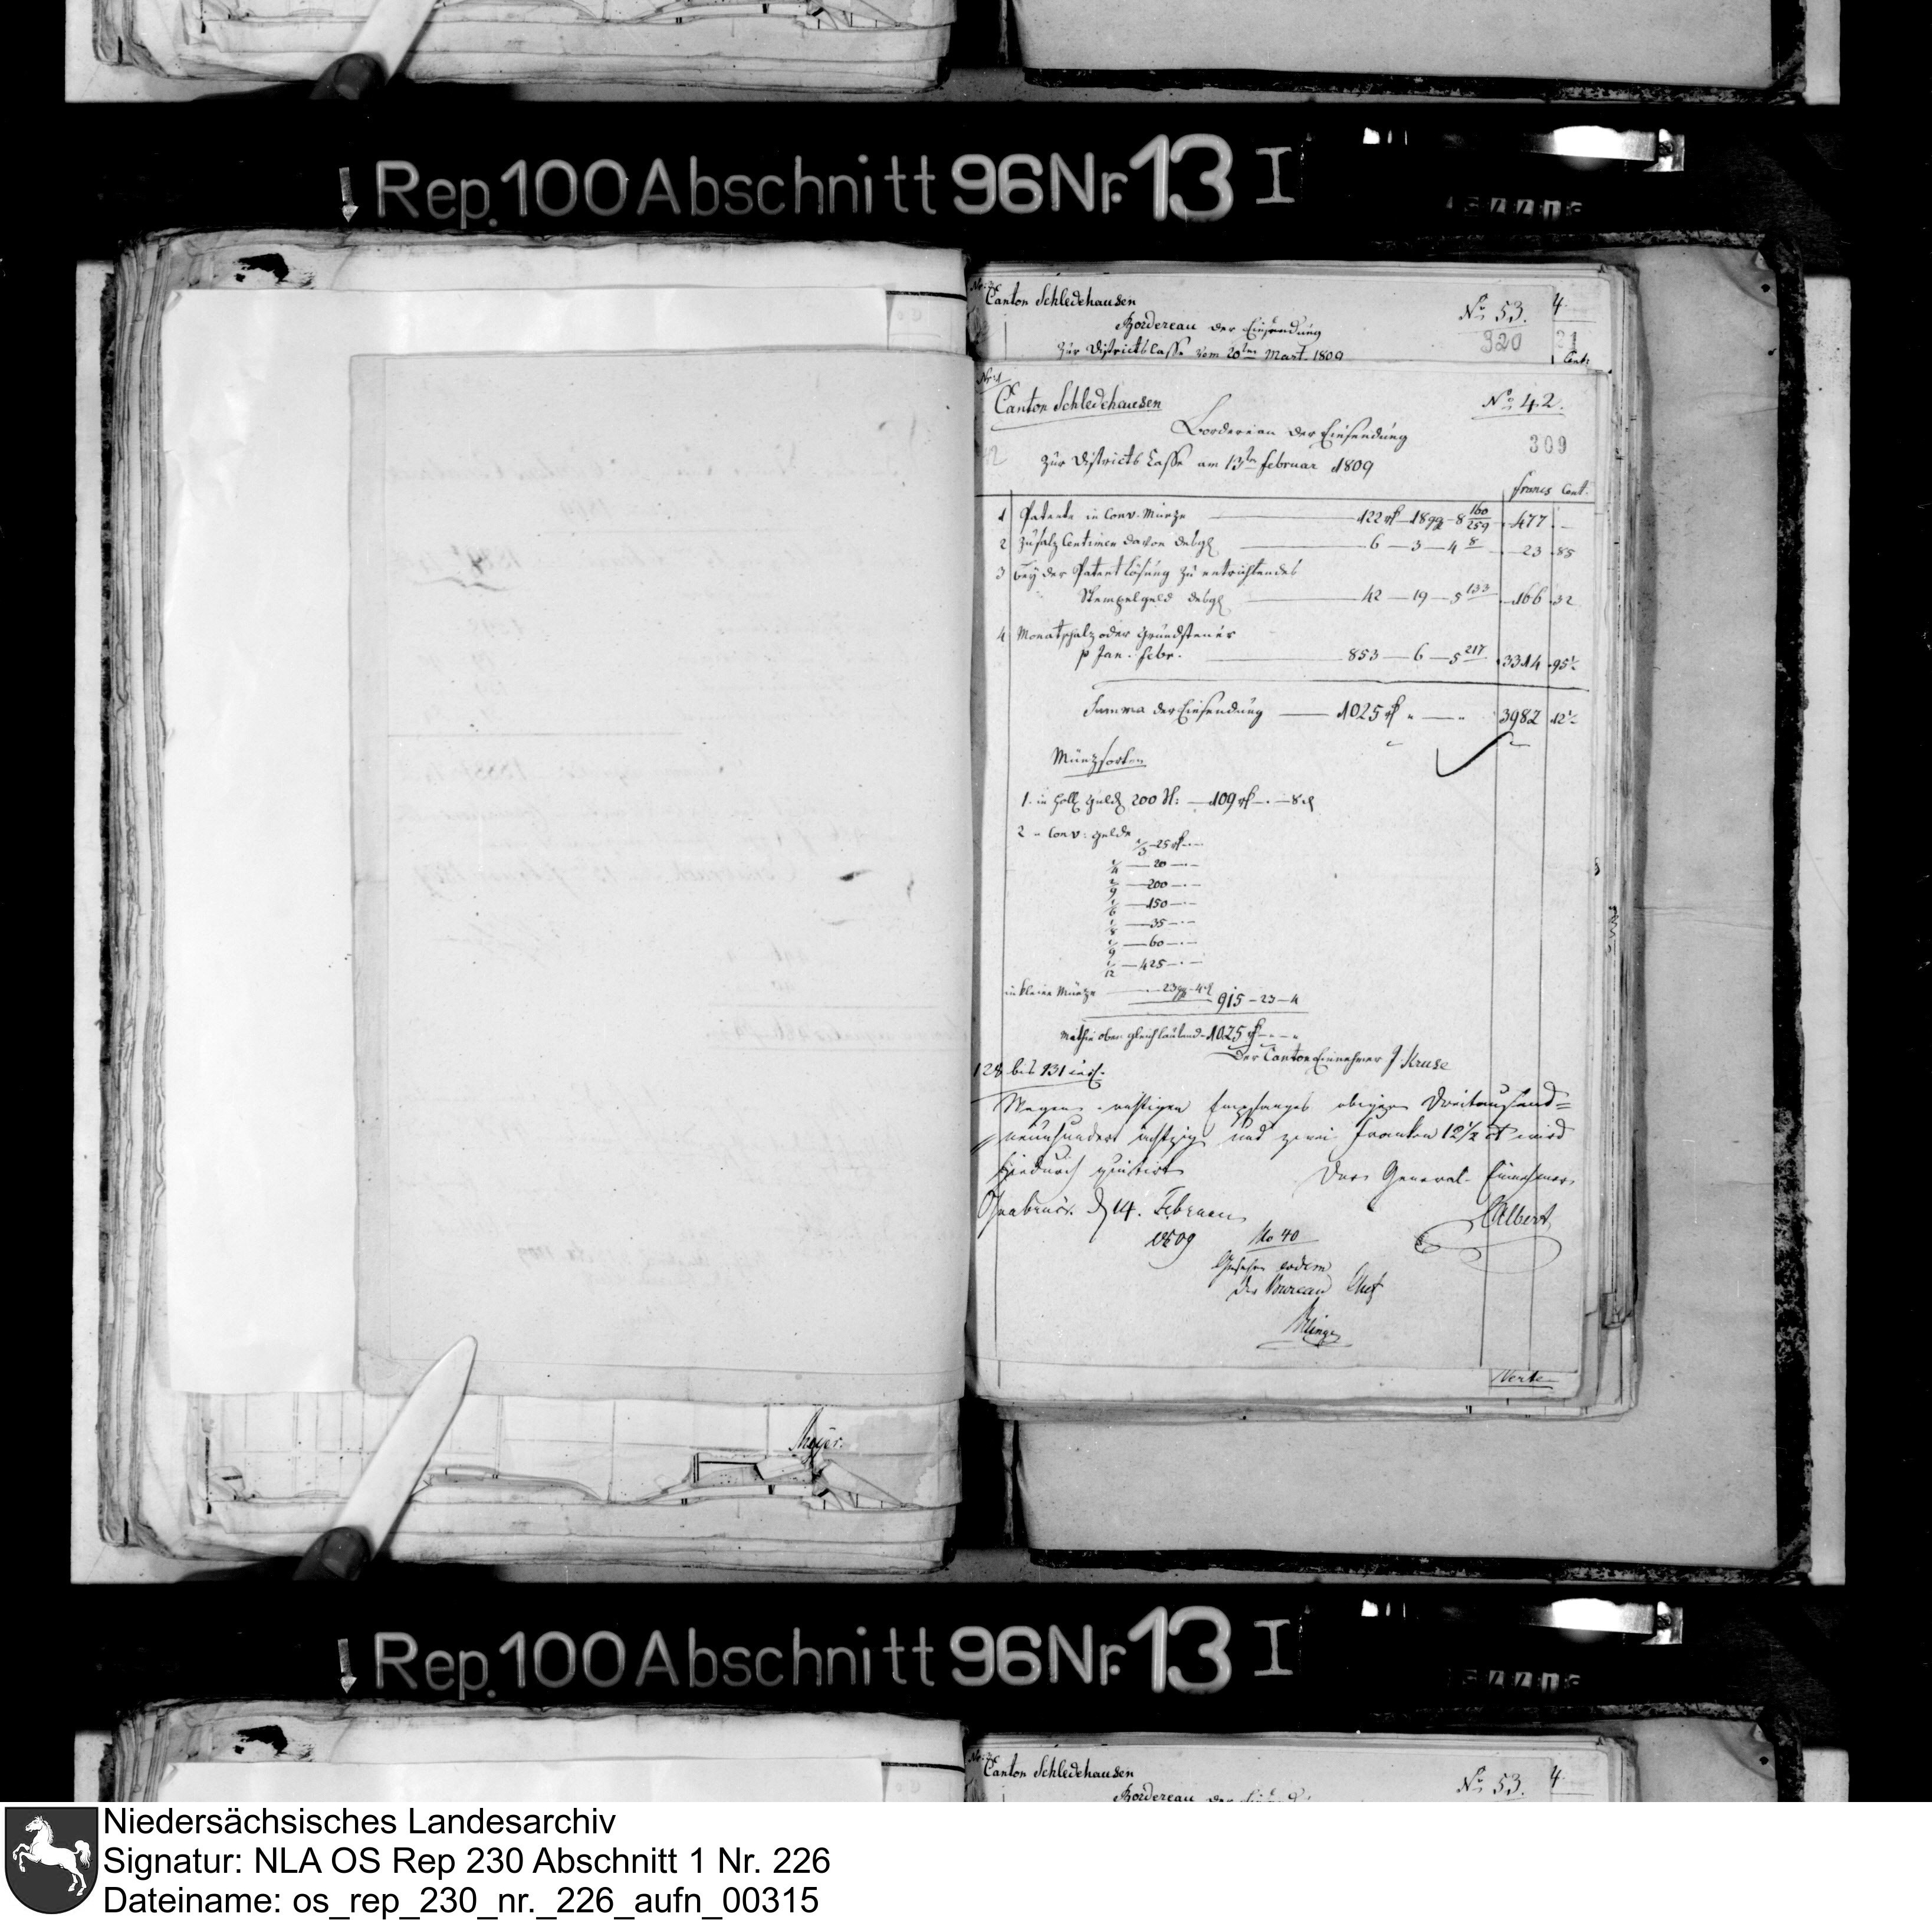 Rep. 100 Abschnitt 96 Nr. 13 I
Canton Schledehausen
No 53. 4
Bordereau der Einsendung
320 21
zur Districts Casse vom 20ten Mart. 1809
Cent:
Canton Schledehausen
No 42.
Bordereau der Einsendung
309
zur Districts Casse am 13ten februar 1809
francs Cent.
1 Patente in Conv. Münze — 122 rh — 18 gg — 8 160/259 477 —
2 Zusatz Centimen davon desgl — 6 — 3 — 4 8 23 85
3 bey der Patent Lösung zu entrichtendes
Stempelgeld desgl — 42 — 19 — 5 133 166 32
4 Monatschatz oder Grundsteuer
p Jan. febr. — 853 — 6 — 5 217 3314 95½
Summa der Einsendung — 1025 rh " — " 3982 12½
Münzsorten
1. in holl. Geld 200 Fl: — 109 rh — . — 8 d
2 - Conv: Gelde
1/3 — 25 rh — . —
1/4 — 20 — . —
2/9 — 200 — . —
1/6 — 150 — . —
1/8 — 35 — . —
1/9 — 60 — . —
1/12 — 425 — . —
in kleine Münze — . — 23 gg — 4 d 915 — 23 — 4
Mithin oben gleichlautend — 1025 rh — " — "
Der Canton Einnehmer J. Kruse
128 bis 131 incl.
Wegen richtigen Empfanges obiger Dreitausend=
neunhundert achtzig und zwei Franken 12½ ct wird
hiedurch quitirt
Der General-Einnehmer
Osnabrück d 14. Februar
1809
Albert
No 40
Gesehen eodem
Der Bureau Chef
Verte
Meyer.
Rep. 100 Abschnitt 96 Nr. 13 I
Canton Schledehausen
No 53. 4
Niedersächsisches Landesarchiv
Signatur: NLA OS Rep 230 Abschnitt 1 Nr. 226
Dateiname: os_rep_230_nr._226_aufn_00315